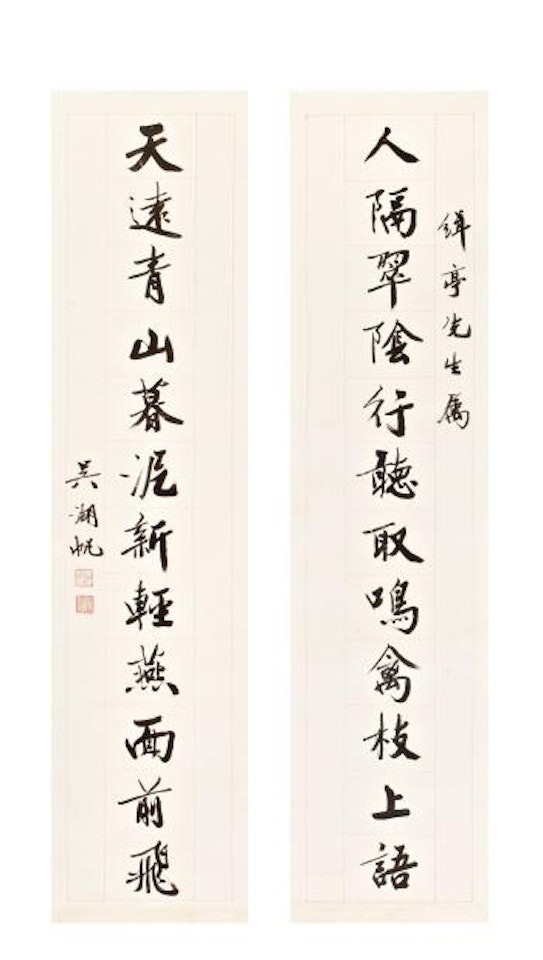 亭先生屬
人隔翠陰行聽取鳴禽枝上語
天遠青山暮泥新輕燕面前飛
吳湖帆